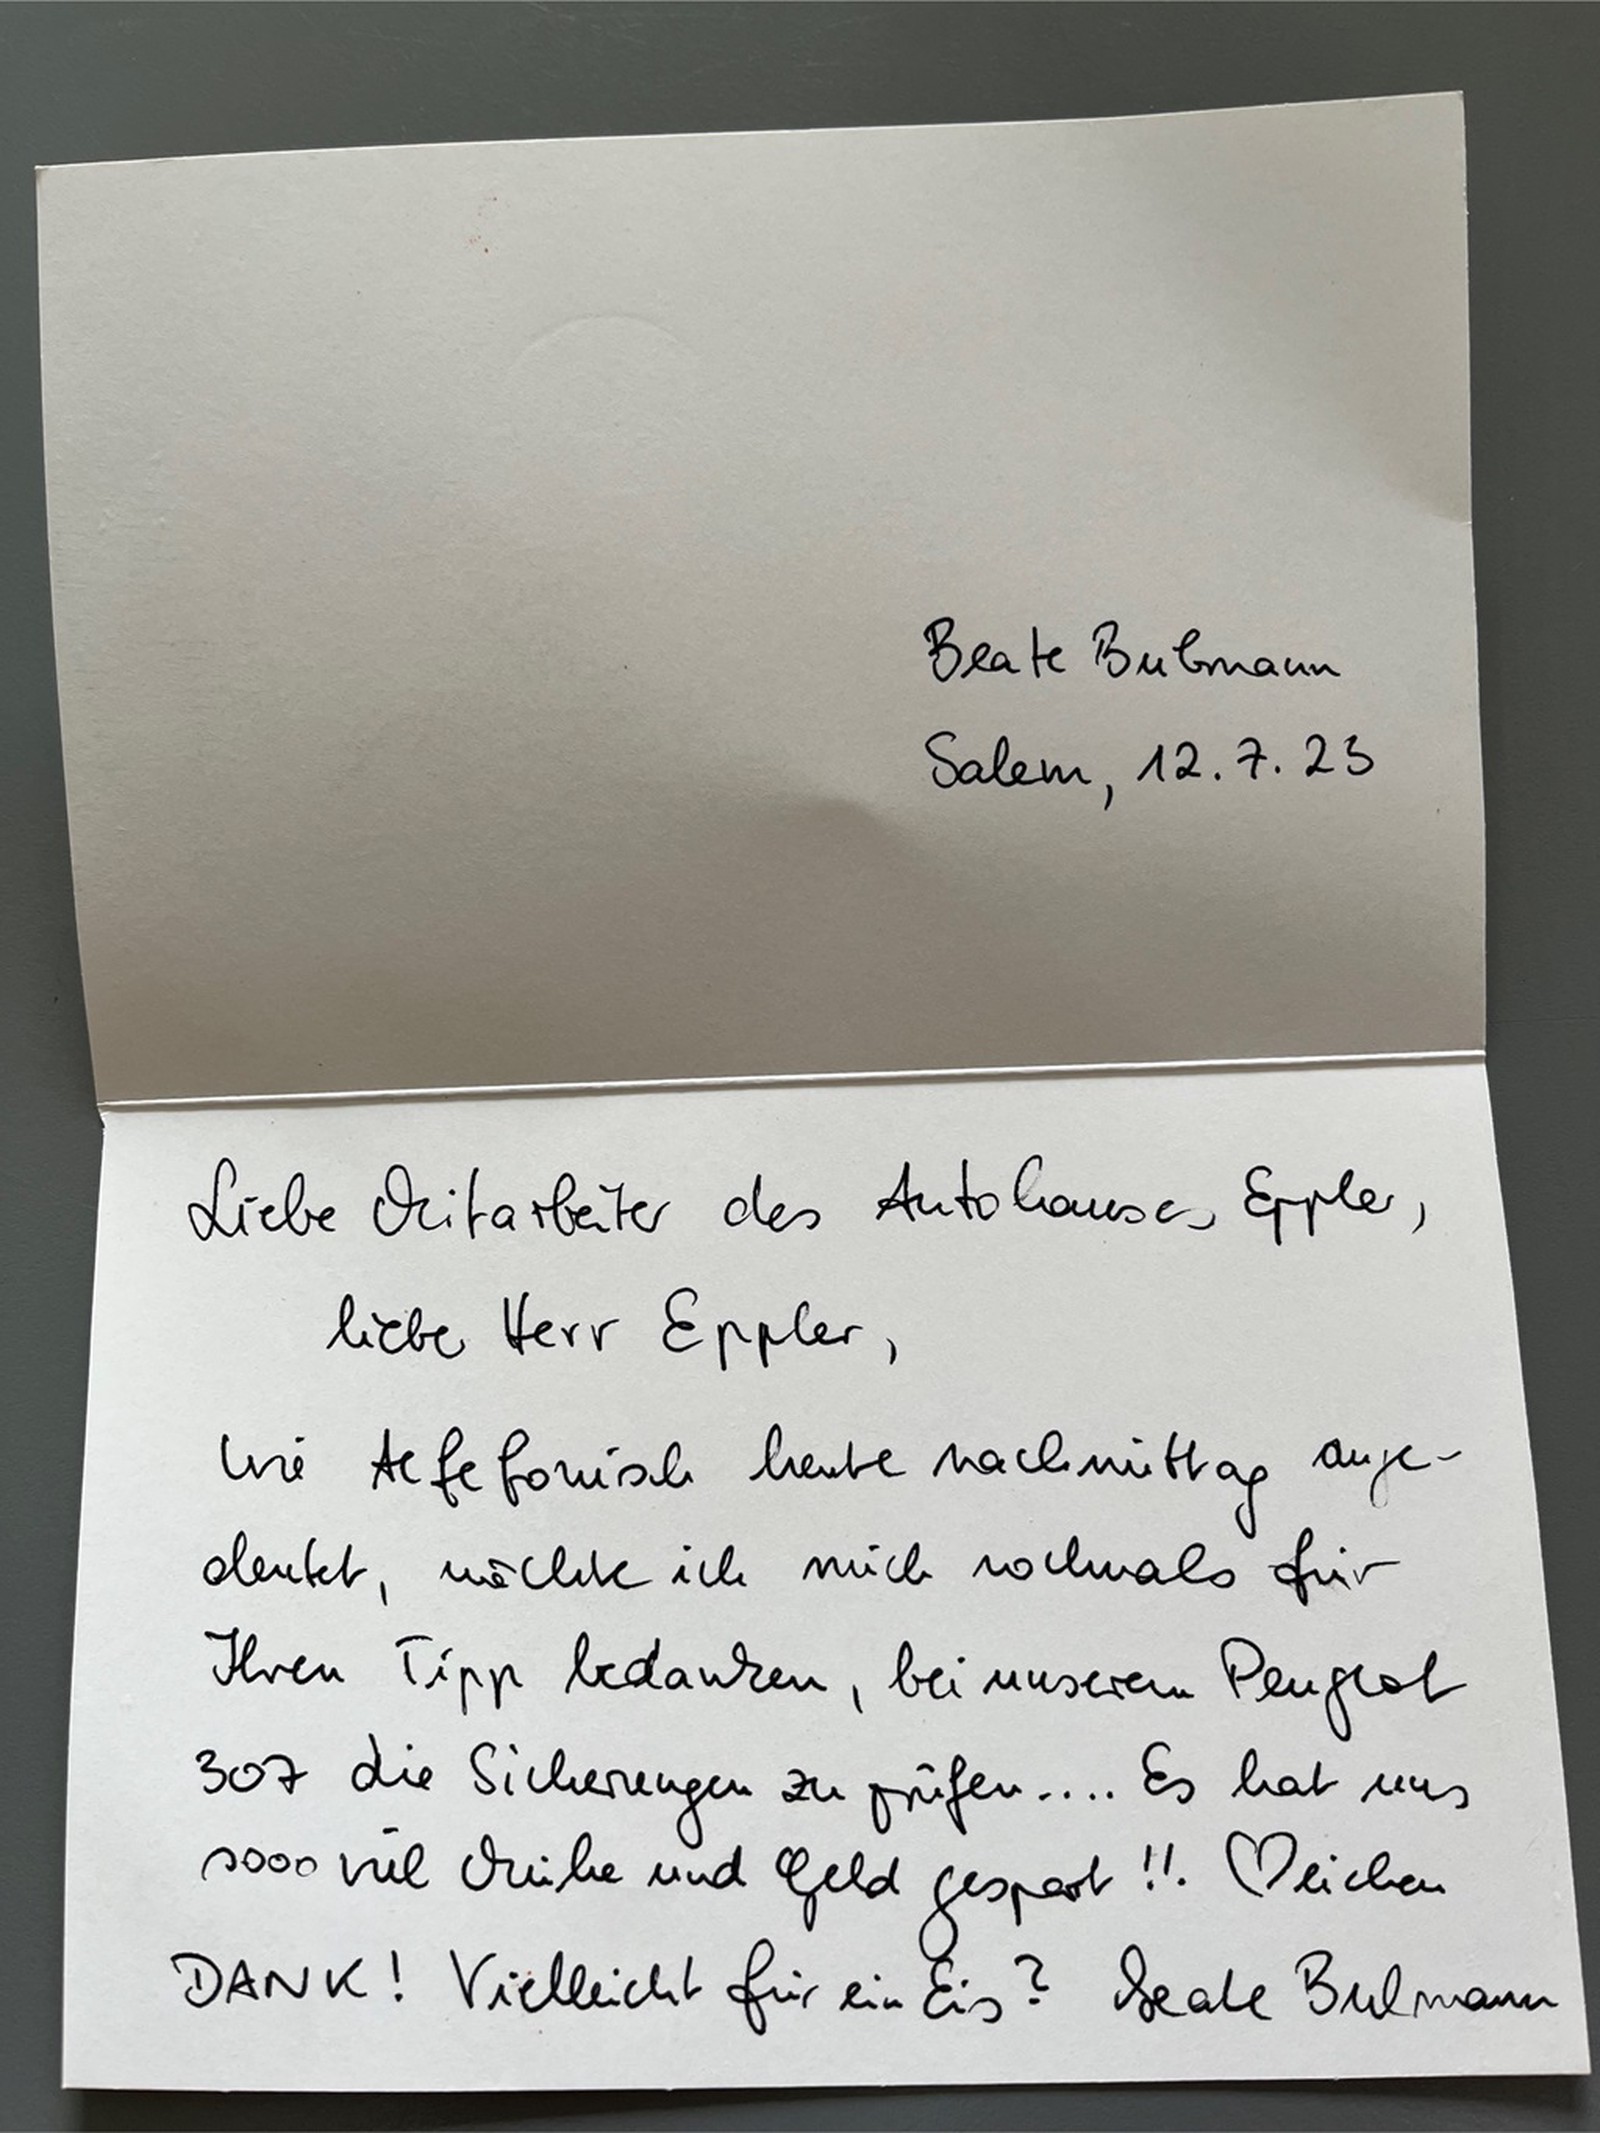 Beate Bulmann
Salem, 12.7.23
Liebe Mitarbeiter des Autohauses Eppler,
liebe Herr Eppler,
Wie telefonisch heute nachmittag ange-
deutet, möchte ich mich nochmals für
Ihren Tipp bedanken, bei unserem Peugeot
307 die Sicherungen zu prüfen.... Es hat uns
soooo viel Mühe und Geld gespart!!. ♡lichen
DANK! Vielleicht für ein Eis? Beate Bulmann